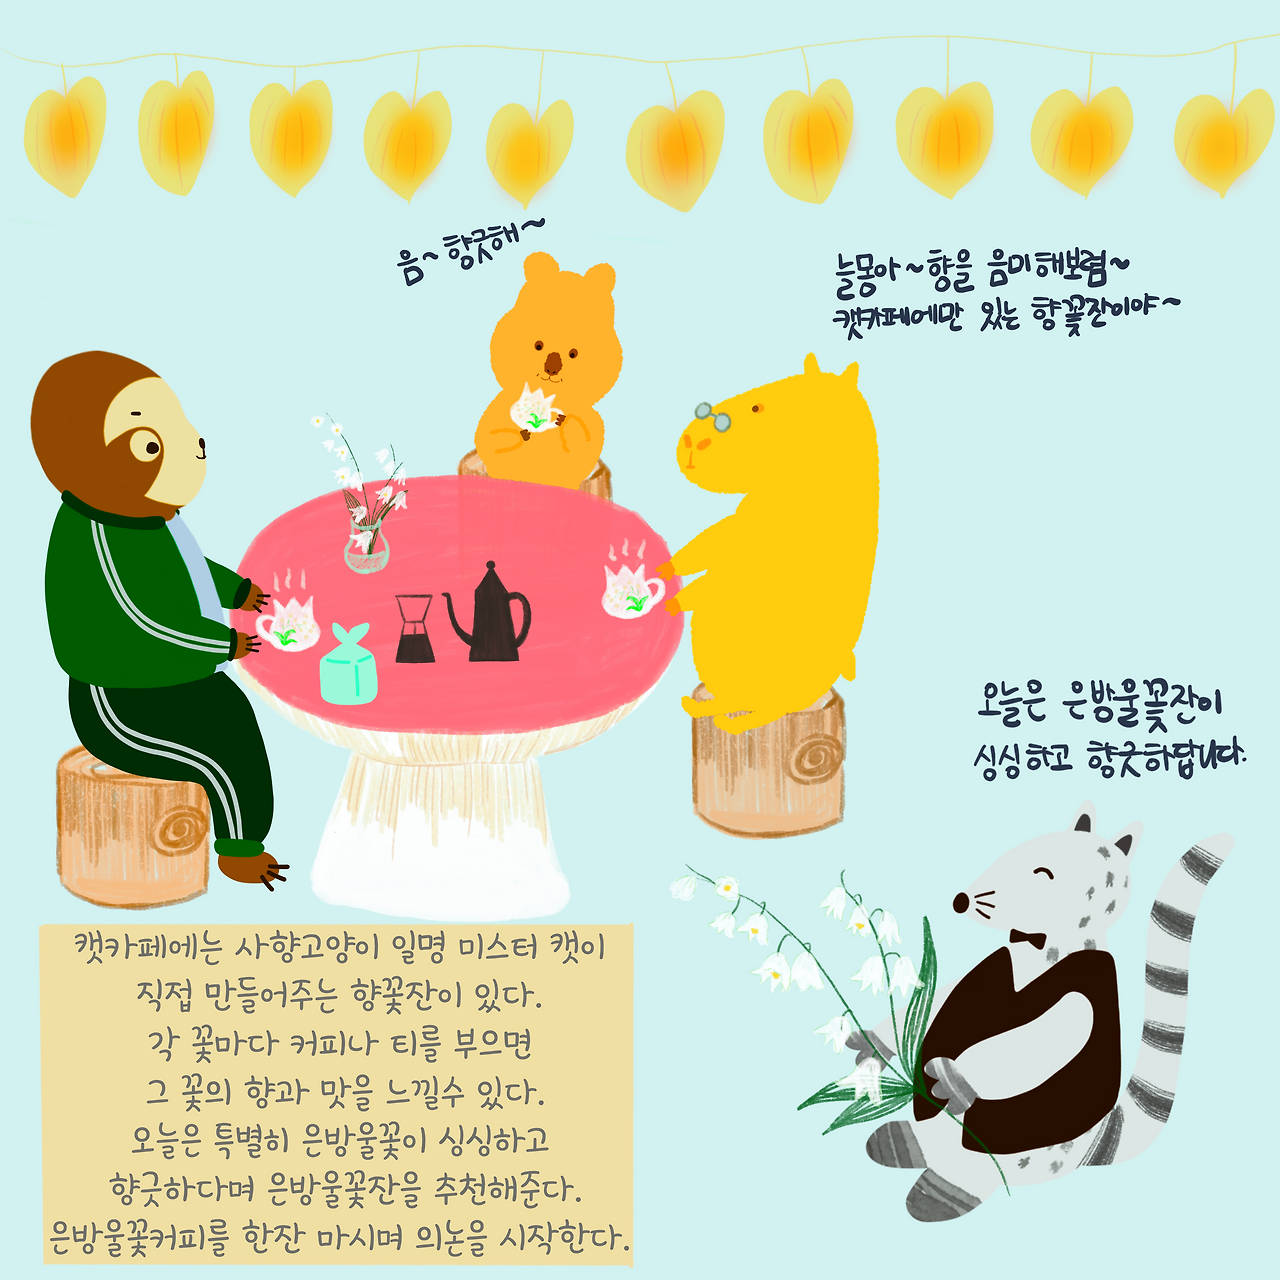 음~ 향긋해~
늘몽아~향을 음미해보렴~
캣카페에만 있는 향꽃잔이야~
오늘은 은방울꽃잔이
싱싱하고 향긋하답니다.
캣카페에는 사향고양이 일명 미스터 캣이
직접 만들어주는 향꽃잔이 있다.
각 꽃마다 커피나 티를 부으면
그 꽃의 향과 맛을 느낄수 있다.
오늘은 특별히 은방울꽃이 싱싱하고
향긋하다며 은방울꽃잔을 추천해준다.
은방울꽃커피를 한잔 마시며 의논을 시작한다.